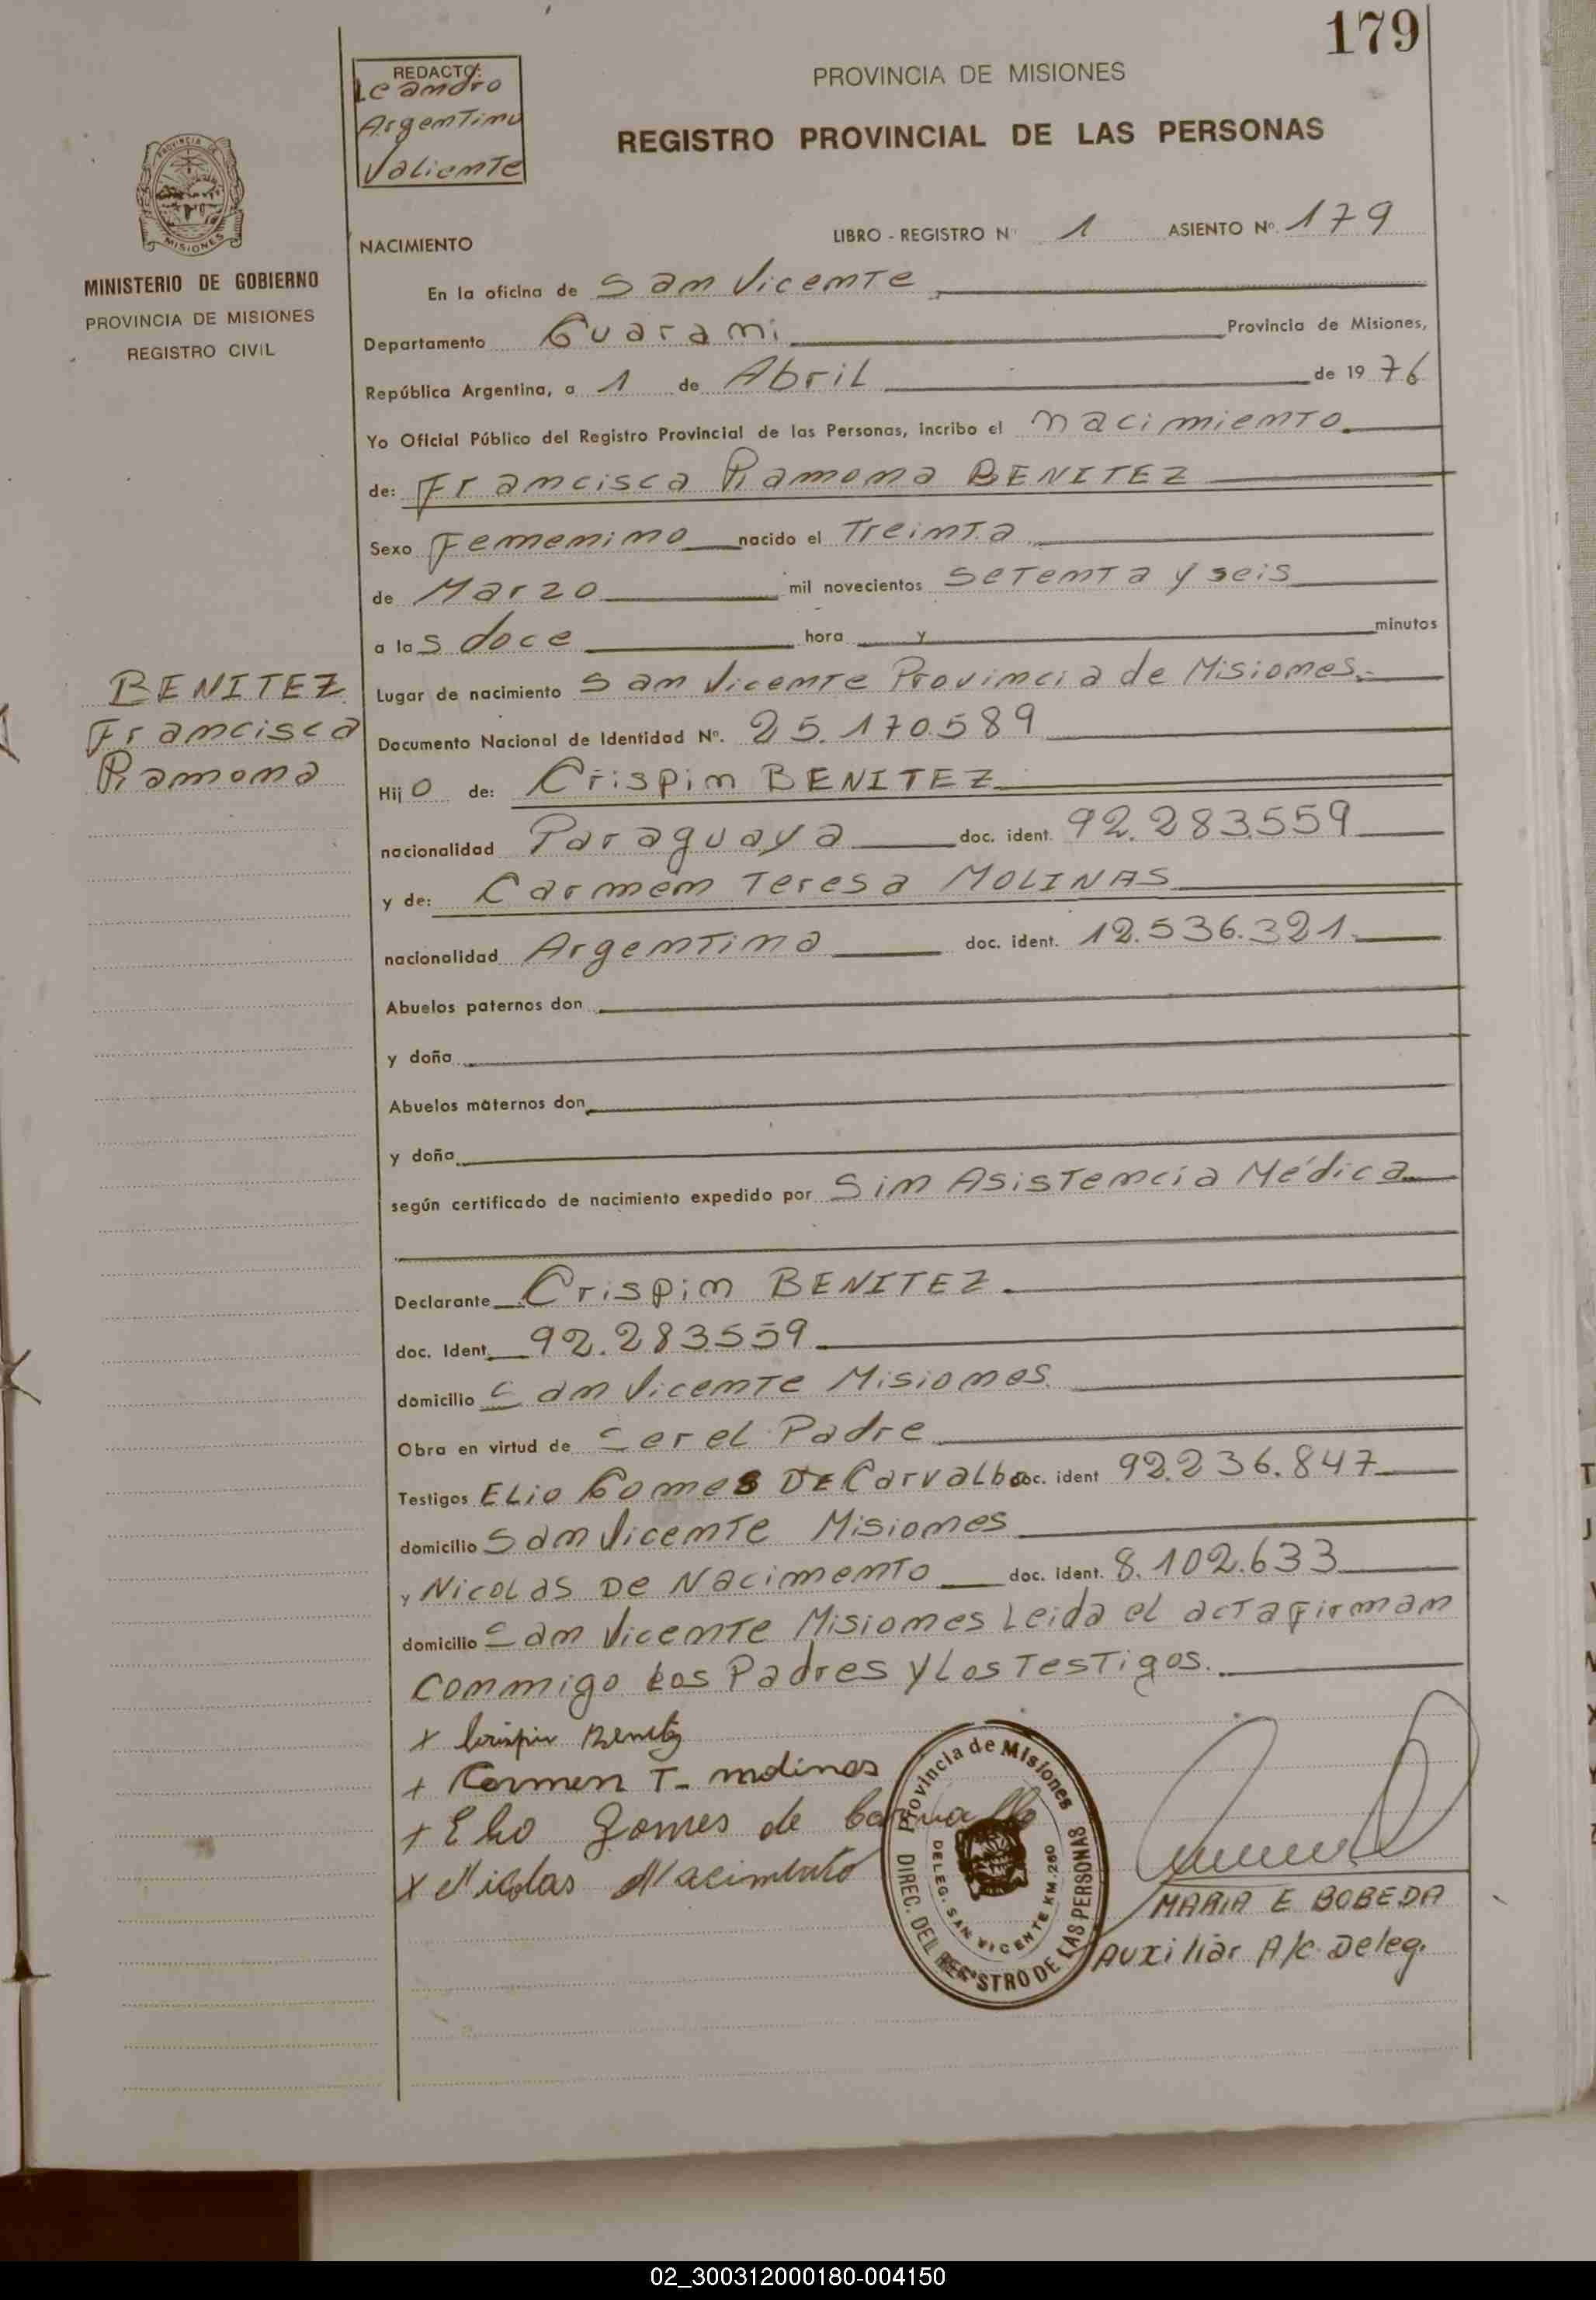 179
REDACTO:
Leandro
Argentino
Valiente
PROVINCIA DE MISIONES
REGISTRO PROVINCIAL DE LAS PERSONAS
MINISTERIO DE GOBIERNO
PROVINCIA DE MISIONES
REGISTRO CIVIL
NACIMIENTO
LIBRO - REGISTRO N° 1 ASIENTO Nº. 179
En la oficina de San Vicente
Departamento Guarani Provincia de Misiones,
República Argentina, a 1 de Abril de 1976
Yo Oficial Público del Registro Provincial de las Personas, incribo el nacimiento
de: Francisca Ramona BENITEZ
Sexo Femenino nacido el Treinta
de Marzo mil novecientos setenta y seis
a las doce hora y minutos
BENITEZ
Francisca
Ramona
Lugar de nacimiento San Vicente Provincia de Misiones.
Documento Nacional de Identidad Nº. 25.170.589
Hijo de: Crispin BENITEZ
nacionalidad Paraguaya doc. ident. 92.283.559
y de: Carmen Teresa MOLINAS
nacionalidad Argentina doc. ident. 12.536.321.
Abuelos paternos don
y doña
Abuelos maternos don
y doña
según certificado de nacimiento expedido por Sin Asistencia Médica
Declarante Crispin BENITEZ
doc. Ident. 92.283.559
domicilio San Vicente Misiones.
Obra en virtud de ser el Padre
Testigos Elio Gomes De Carvalho doc. ident 92.236.847
domicilio San Vicente Misiones
y Nicolas De Nacimento doc. ident. 8.102.633
domicilio San Vicente Misiones Leida el acta firman
conmigo Los Padres y Los Testigos.
x Crispin Benitez
+ Carmen T- molinas
+ Elio Gomes de Carvallo
x Nicolas Nacimento
Provincia de Misiones
DIREC. DEL REGISTRO DE LAS PERSONAS
DELEG. SAN VICENTE KM. 260
MARIA E BOBEDA
Auxiliar A/c. Deleg.
02_300312000180-004150